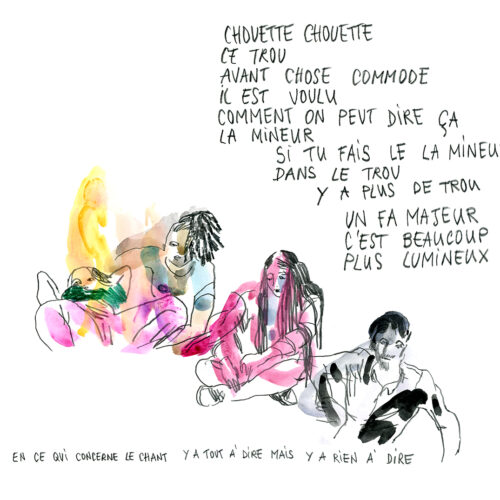 CHOUETTE CHOUETTE
CE TROU
AVANT CHOSE COMMODE
IL EST VOULU
COMMENT ON PEUT DIRE ÇA
LA MINEUR
SI TU FAIS LE LA MINEU
DANS LE TROU
Y A PLUS DE TROU
UN FA MAJEUR
C'EST BEAUCOUP
PLUS LUMINEUX
EN CE QUI CONCERNE LE CHANT Y A TOUT À DIRE MAIS Y A RIEN À DIRE